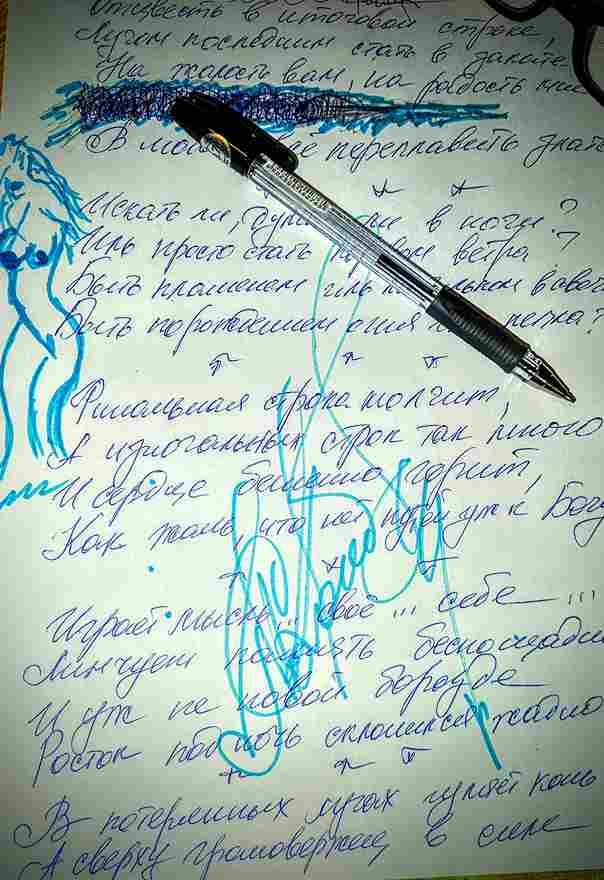 Отзвесть в итоговой строке,
Лучом последним стать в закате,
На жалость вам, на радость мне
В мо переплавить злате
Искать ли, в ночи?
Иль просто стать ветра?
Быть пламенем иль
Быть порождением огня пепла?
Финальная строка молчит,
А изначальных строк так много
И сердце бешено горит,
Как жаль, что нет путей уж к Богу
Играет мысль... своё... себе...
Линчуют память беспощадно
И уж не новой борозде
Росток под ночь склонился жадно
В потерянных лугах гуляет конь
А сверху громовержец в силе